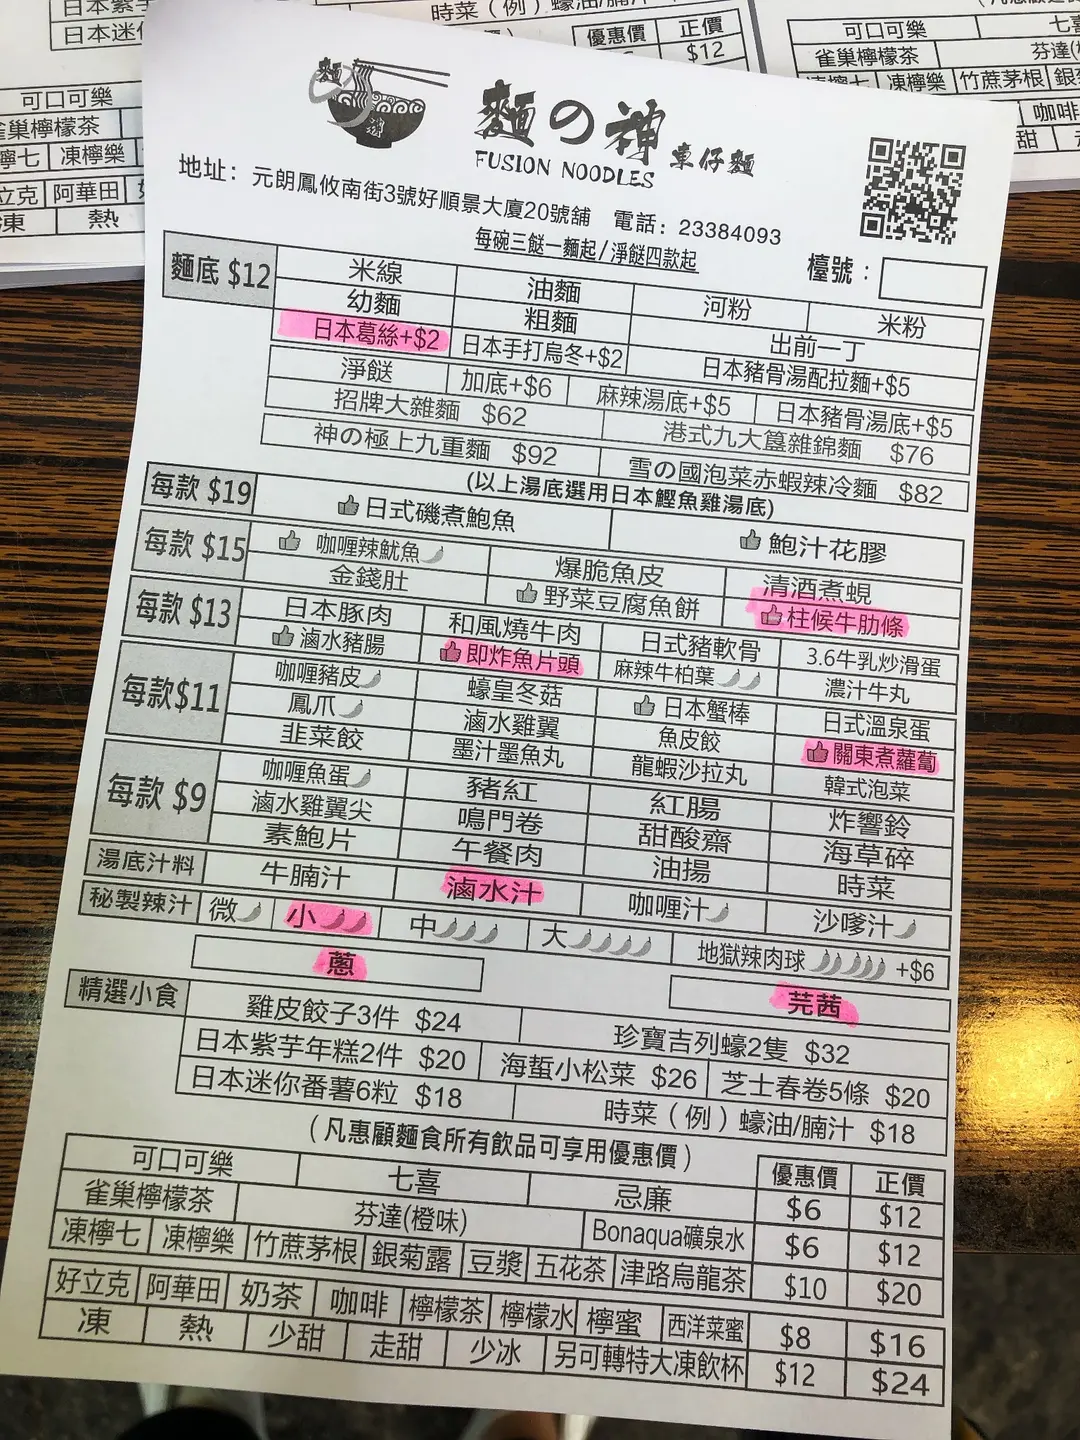 麵の神 車仔麵
FUSION NOODLES
地址：元朗鳳攸南街3號好順景大廈20號舖 電話：23384093
每碗三餸一麵起/淨餸四款起
檯號：
麵底 $12
米線 油麵 河粉 米粉
幼麵 粗麵 出前一丁
日本葛絲+$2 日本手打烏冬+$2 日本豬骨湯配拉麵+$5
淨餸 加底+$6 麻辣湯底+$5 日本豬骨湯底+$5
招牌大雜麵 $62 港式九大簋雜錦麵 $76
神の極上九重麵 $92 雪の國泡菜赤蝦辣冷麵 $82
(以上湯底選用日本鰹魚雞湯底)
每款 $19
日式磯煮鮑魚 鮑汁花膠
每款 $15
咖喱辣魷魚 爆脆魚皮 清酒煮蜆
金錢肚 野菜豆腐魚餅 柱候牛肋條
每款 $13
日本豚肉 和風燒牛肉 日式豬軟骨 3.6牛乳炒滑蛋
滷水豬腸 即炸魚片頭 麻辣牛柏葉 濃汁牛丸
每款$11
咖喱豬皮 蠔皇冬菇 日本蟹棒 日式溫泉蛋
鳳爪 滷水雞翼 魚皮餃 關東煮蘿蔔
韭菜餃 墨汁墨魚丸 龍蝦沙拉丸 韓式泡菜
每款 $9
咖喱魚蛋 豬紅 紅腸 炸響鈴
滷水雞翼尖 鳴門卷 甜酸齋 海草碎
素鮑片 午餐肉 油揚 時菜
湯底汁料 牛腩汁 滷水汁 咖喱汁 沙嗲汁
秘製辣汁 微 小 中 大 地獄辣肉球 +$6
蔥 芫茜
精選小食 雞皮餃子3件 $24 珍寶吉列蠔2隻 $32
日本紫芋年糕2件 $20 海蜇小松菜 $26 芝士春卷5條 $20
日本迷你番薯6粒 $18 時菜（例）蠔油/腩汁 $18
(凡惠顧麵食所有飲品可享用優惠價) 優惠價 正價
可口可樂 七喜 忌廉 $6 $12
雀巢檸檬茶 芬達(橙味) Bonaqua礦泉水 $6 $12
凍檸七 凍檸樂 竹蔗茅根 銀菊露 豆漿 五花茶 津路烏龍茶 $10 $20
好立克 阿華田 奶茶 咖啡 檸檬茶 檸檬水 檸蜜 西洋菜蜜 $8 $16
凍 熱 少甜 走甜 少冰 另可轉特大凍飲杯 $12 $24
日本迷
時菜（例）蠔油/
優惠價 正價
$12
可口可樂
雀巢檸檬茶
檸七 凍檸樂
立克 阿華田
凍 熱
可口可樂 七喜
雀巢檸檬茶 芬達
凍檸樂 竹蔗茅根
咖啡
甜